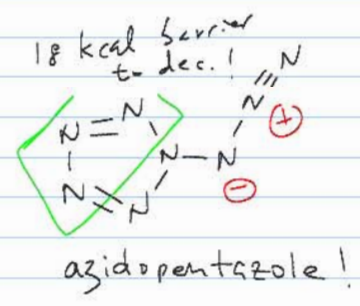 18 kcal barrier
to dec.!
N
N
N
N
N
N
N
N
+
-
azidopentazole!